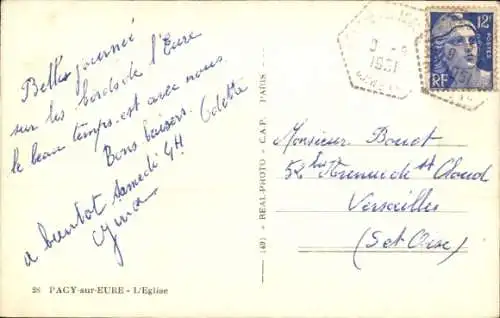 Belle journée
sur les bords de l'Eure
le beau temps est avec nous.
Bons baisers. Odette
a bientot Samedi 4H
28 PACY-sur-EURE - L'Eglise
(49) - REAL-PHOTO - C.A.P. PARIS
12F
POSTES
RF
1951
Monsieur Bouot
52 bis Avenue de St Cloud
Versailles
(S et Oise)